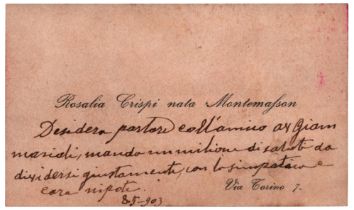 Rosalia Crispi nata Montemasson
Desidera partare coll'amico av Giam
marioli, mando un milione di saluti da
dividersi giustamente, con lo simpatica e
cara nipote.
Via Torino 7.
8-5-903